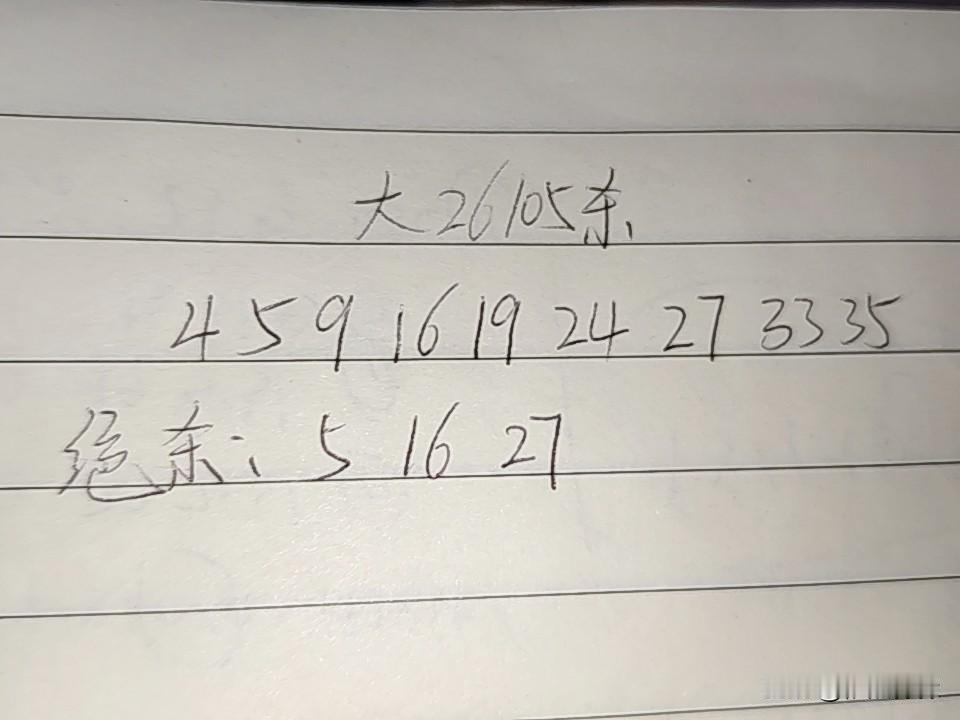 大26105杀
4 5 9 16 19 24 27 33 35
绝杀: 5 16 27